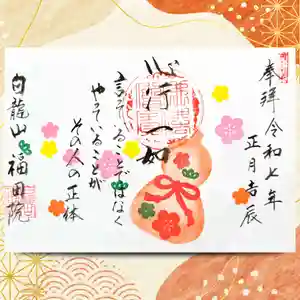 奉拝 令和七年
正月吉辰
心行一如
言っていることではなく
やっていることが
その人の正体
白龍山 福田院